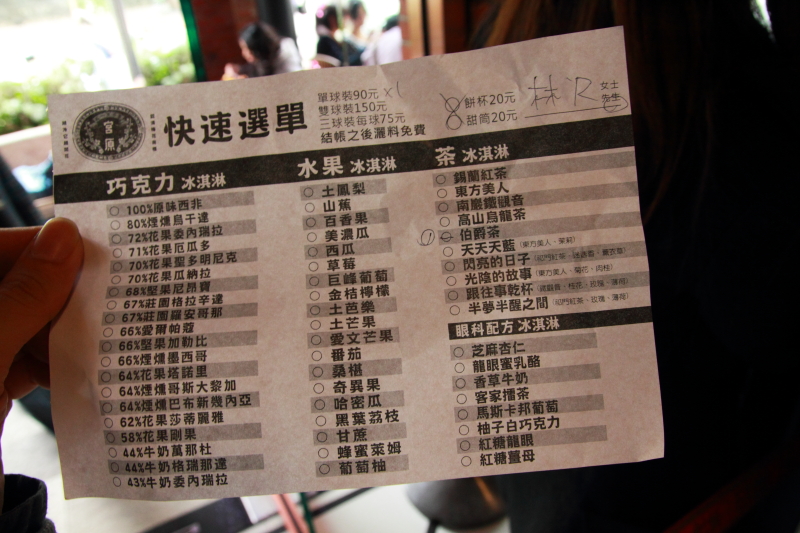 宮原
快速選單
單球裝90元 x1
雙球裝150元
三球裝每球75元
結帳之後灑料免費
餅杯20元
甜筒20元
林
女士
先生
巧克力 冰淇淋
100%原味西非
80%煙燻烏干達
72%花果委內瑞拉
71%花果厄瓜多
70%花果聖多明尼克
70%花果瓜納拉
68%堅果尼昂寶
67%莊園格拉辛達
67%莊園羅安哥那
66%愛爾帕蔻
66%堅果加勒比
66%煙燻墨西哥
64%花果塔諾里
64%煙燻哥斯大黎加
64%煙燻巴布新幾內亞
62%花果莎蒂麗雅
58%花果剛果
44%牛奶萬那杜
44%牛奶格瑞那達
43%牛奶委內瑞拉
水果 冰淇淋
土鳳梨
山蕉
百香果
美濃瓜
西瓜
草莓
巨峰葡萄
金桔檸檬
土芭樂
土芒果
愛文芒果
番茄
桑椹
奇異果
哈密瓜
黑葉荔枝
甘蔗
蜂蜜萊姆
葡萄柚
茶 冰淇淋
錫蘭紅茶
東方美人
南巖鐵觀音
高山烏龍茶
伯爵茶
天天天藍 (東方美人、茉莉)
閃亮的日子
光陰的故事 (東方美人、菊花、肉桂)
跟往事乾杯
半夢半醒之間
眼科配方 冰淇淋
芝麻杏仁
龍眼蜜乳酪
香草牛奶
客家擂茶
馬斯卡邦葡萄
柚子白巧克力
紅糖龍眼
紅糖薑母